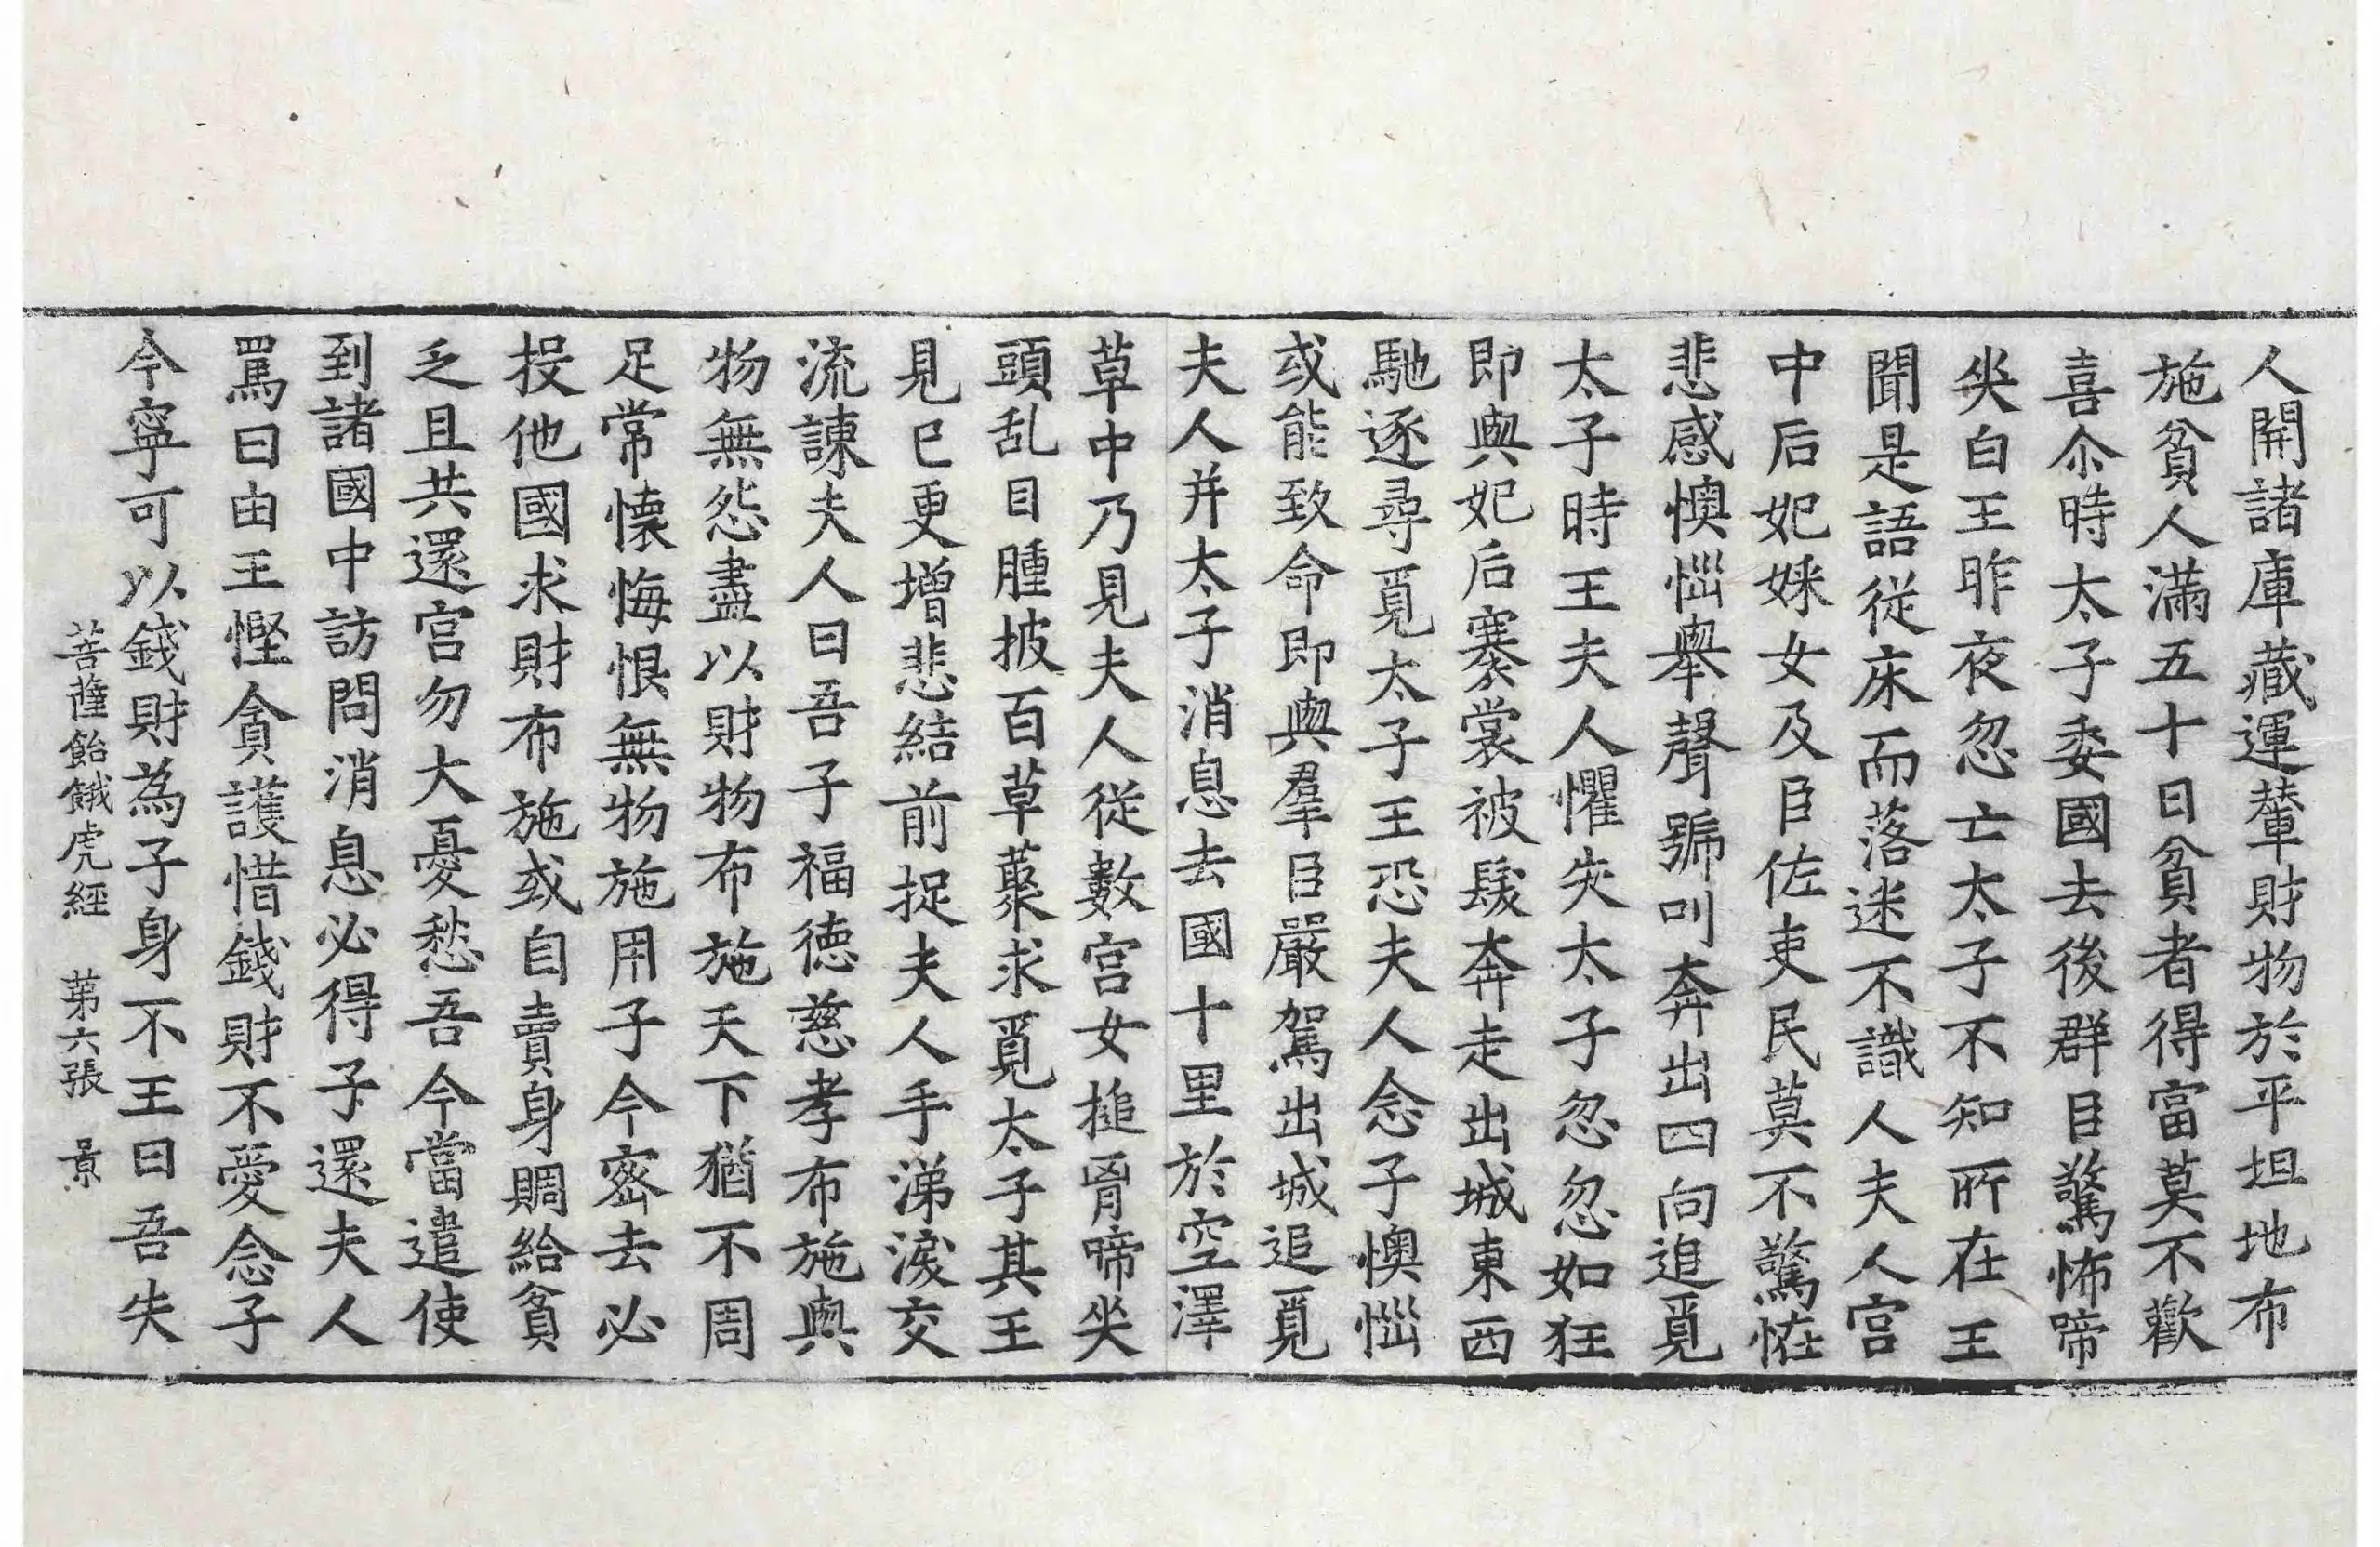 人開諸庫藏運輦財物於平坦地布
施貧人滿五十日貧者得富莫不歡
喜尒時太子委國去後群臣驚怖啼
㘸白王昨夜忽亡太子不知所在王
聞是語從床而落迷不識人夫人宮
中后妃婇女及臣佐吏民莫不驚恠
悲感懊惱舉聲號叫奔出四向追覓
太子時王夫人懼失太子忽忽如狂
即與妃后褰裳被髮奔走出城東西
馳逐尋覓太子王恐夫人念子懊惱
或能致命即與羣臣嚴駕出城追覓
夫人并太子消息去國十里於空澤
草中乃見夫人從數宮女搥胷啼哭
頭乱目腫披百草藂求覓太子其王
見已更增悲結前捉夫人手涕淚交
流諫夫人曰吾子福德慈孝布施與
物無怨盡以財物布施天下猶不周
足常懷悔恨無物施用子今密去必
投他國求財布施或自賣身賙給貧
乏且共還宮勿大憂愁吾今當遣使
到諸國中訪問消息必得子還夫人
罵曰由王慳貪護惜錢財不愛念子
今寧可以錢財為子身不王曰吾失
菩薩飴餓虎經 苐六張 景